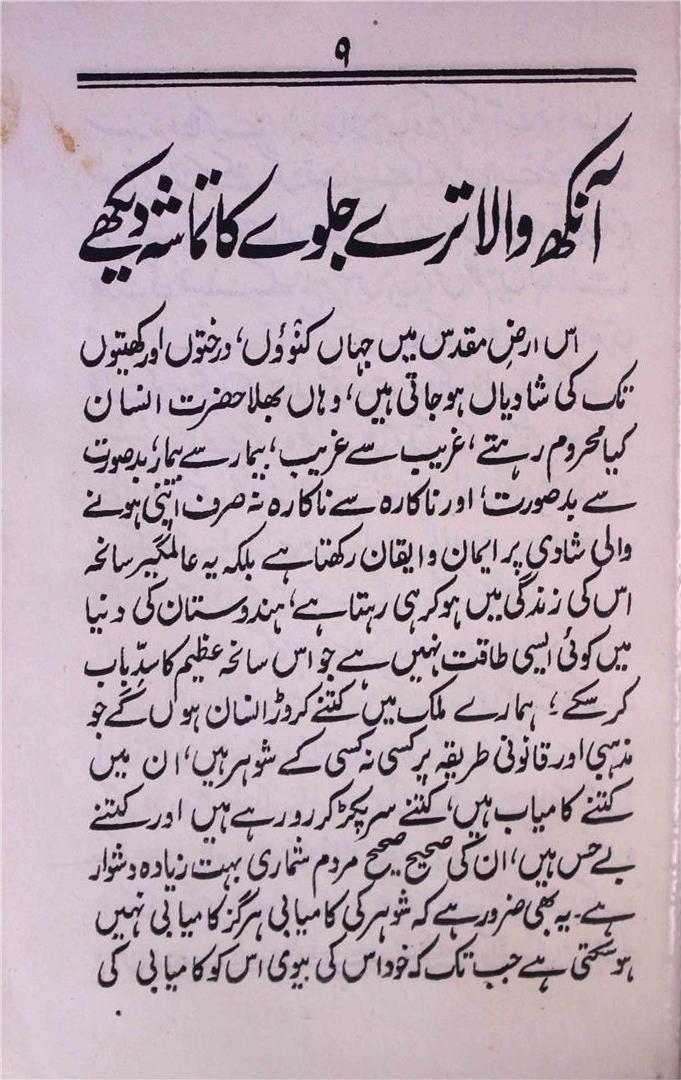 ۹
آنکھ والا ترے جلوے کا تماشہ دیکھے
اس ارضِ مقدس میں جہاں کنوؤں، درختوں اور کھیتوں
تک کی شادیاں ہوجاتی ہیں، وہاں بھلا حضرت انسان
کیا محروم رہتے، غریب سے غریب، بیمار سے بیمار، بدصورت
سے بدصورت، اور ناکارہ سے ناکارہ نہ صرف اپنی ہونے
والی شادی پر ایمان و ایقان رکھتا ہے بلکہ یہ عالمگیر سانحہ
اس کی زندگی میں ہو کر ہی رہتا ہے، ہندوستان کی دنیا
میں کوئی ایسی طاقت نہیں ہے جو اس سانحہ عظیم کا سدِّ باب
کر سکے ؛ ہمارے ملک میں کتنے کروڑ انسان ہوں گے جو
مذہبی اور قانونی طریقہ پر کسی نہ کسی کے شوہر ہیں، ان میں
کتنے کامیاب ہیں، کتنے سر پکڑ کر رو رہے ہیں اور کتنے
بے حس ہیں، ان کی صحیح صحیح مردم شماری بہت زیادہ دشوار
ہے۔ یہ بھی ضرور ہے کہ شوہر کی کامیابی ہرگز کامیابی نہیں
ہوسکتی ہے جب تک کہ خود اس کی بیوی اس کو کامیابی کی